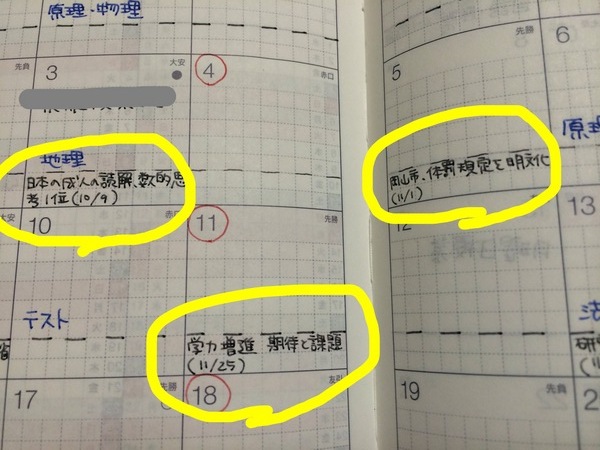 原理・物理
先負
3
大安
4
赤口
5
先勝
6
地理
日本の成人の読解、数的思
考1位(10/9)
岡山市・体罰規定を明文化
(11/1)
原理
大安
10
赤口
11
先勝
12
13
テスト
学力増進 期待と課題
(11/25)
法
省
17
先勝
18
友引
19
先負
2